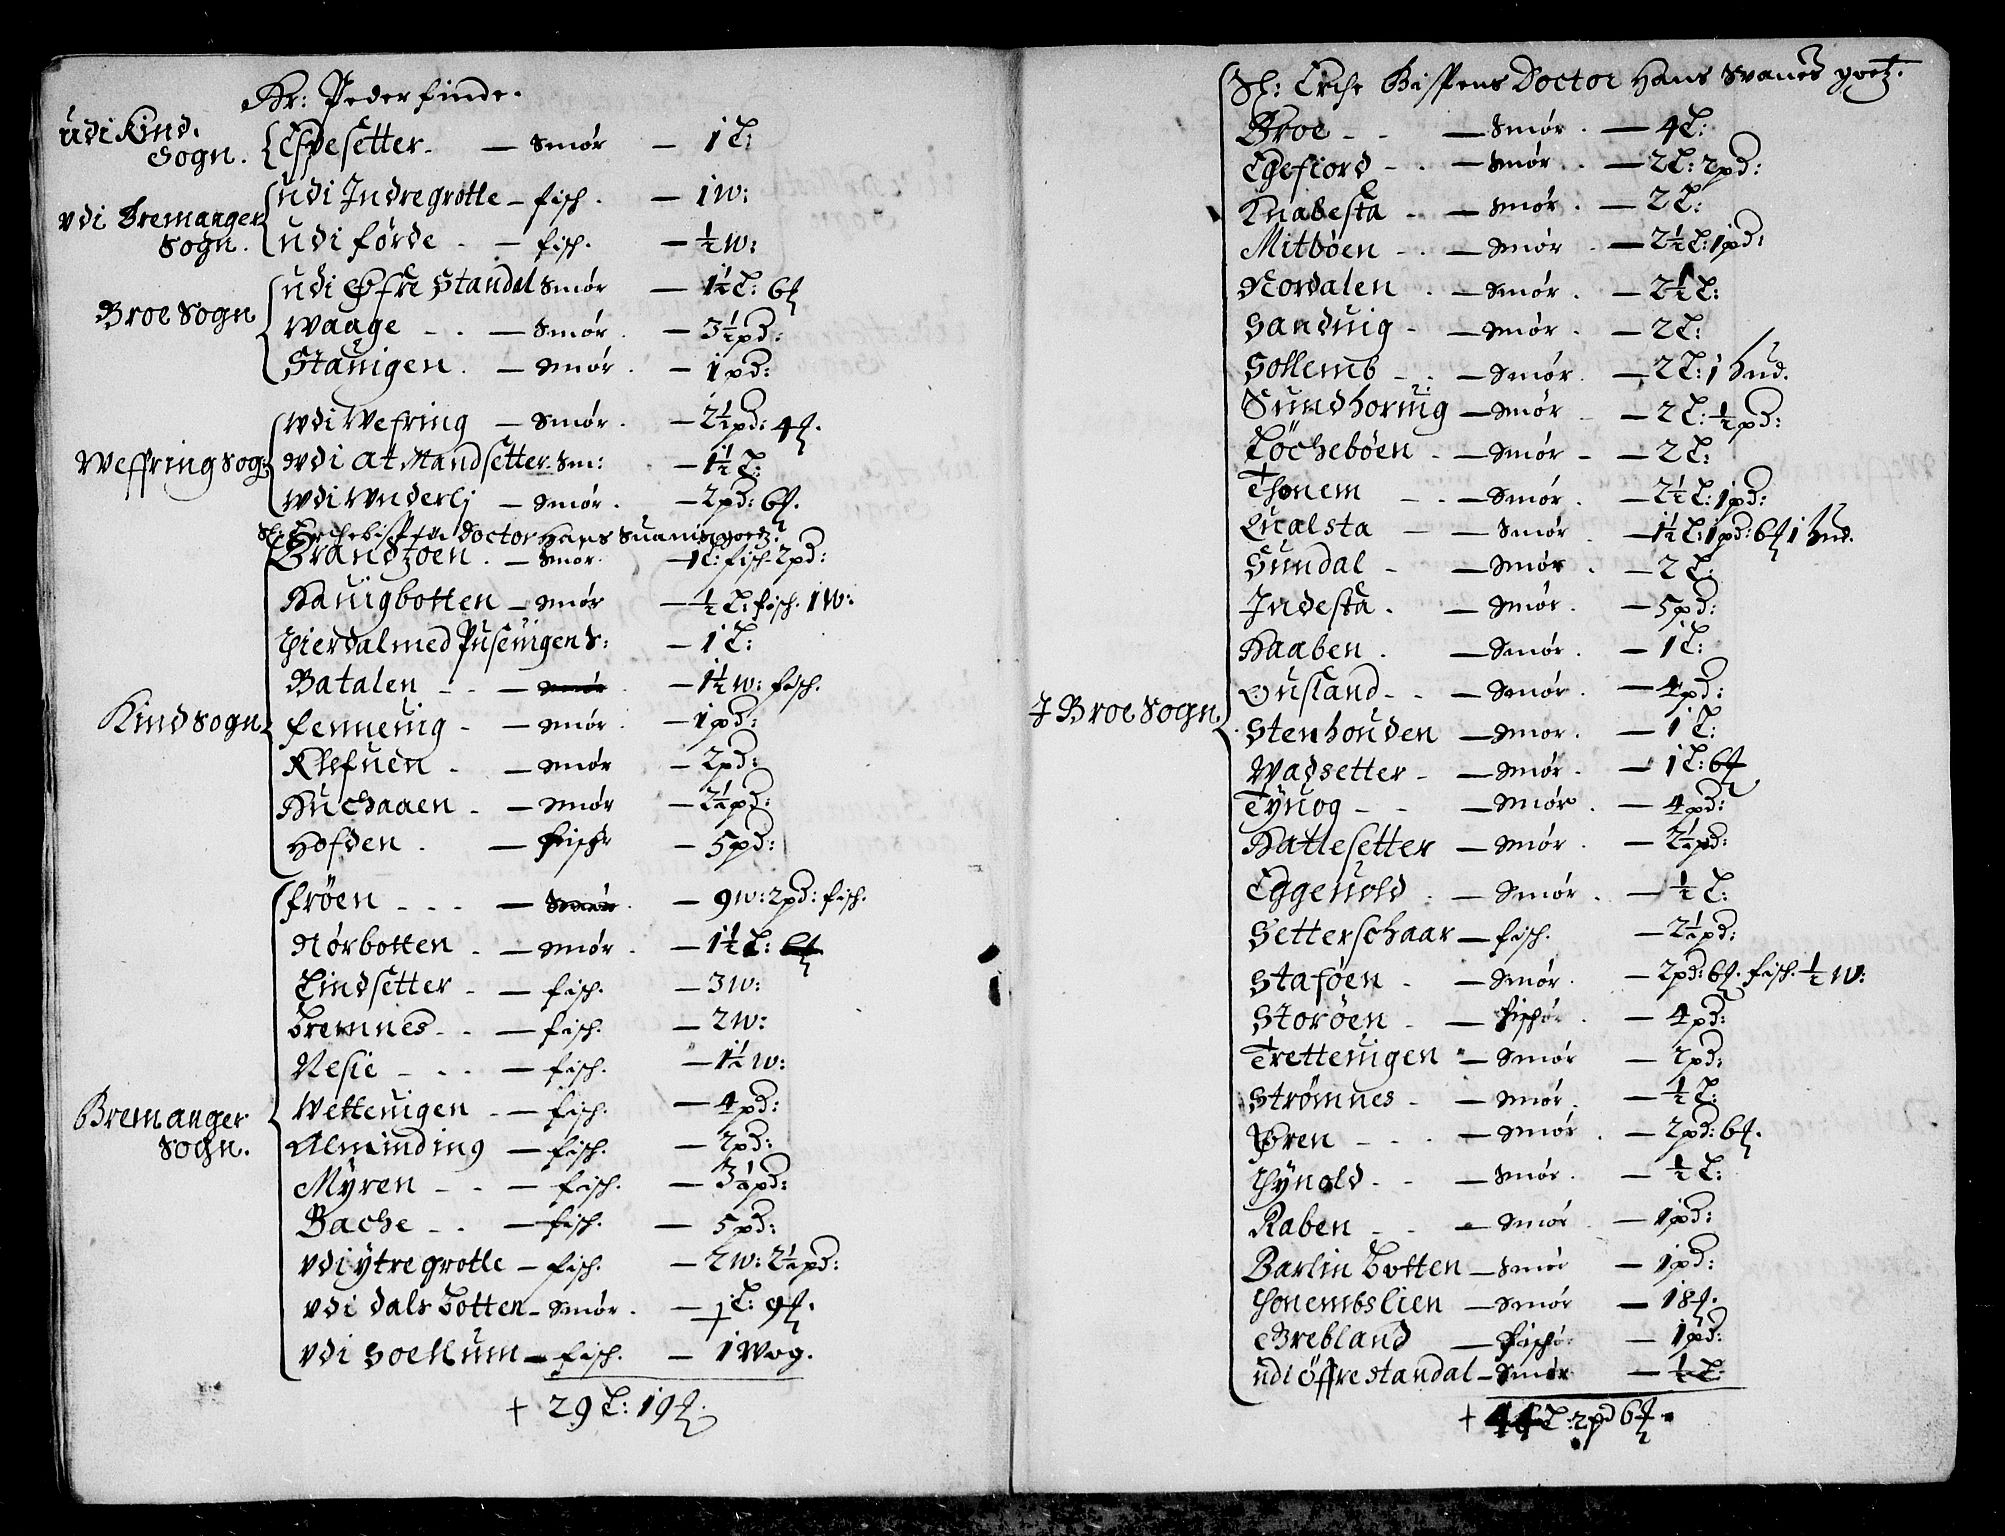 Hr: Peder finde.
udi Kind Sogn.
Espesetter - Smør - 1 L:
vdi Bremanger Sogn.
udi Indregrotle - fisch. - 1 w:
udi førde - fisch. - ½ w:
Broe Sogn
udi Øfre Standal Smør - 1½ L: 6 ℔
Waage - Smør - 3½ pd:
Stauigen - Smør - 1 pd:
Weffring Sogn
wdi Wefring - Smør - 2½ pd: 4 ℔.
wdi at Mandsetter Sm: - 1½ L:
wdi Vnderlj - Smør - 2 pd: 6 ℔.
Sl: Erchebisspen Doctor Hans Suanis goetz.
Kind Sogn
Brandzøen - Smør - 1 L: fisch 2 pd:
Hauigbotten - Smør - ½ L: fisch. 1 w:
Hierdal med Puseuigen S: - 1 L:
Batalen - Smør - 1½ w: fisch.
fenneuig - Smør - 1 pd:
Klefuen - Smør - 2 pd:
Huchaaen - Smør - 2½ pd:
Hofden - fisch - 5 pd:
Bremanger Sogn.
frøen - Smør - 9 w: 2 pd: fisch.
Nørbotten - Smør - 1½ L: 6 ℔
Lindsetter - fisch. - 3 w:
Bremnes - fisch. - 2 w:
Nesie - fisch. - 1½ w:
Wetteuigen - fisch. - 4 pd:
Alminding - fisch. - 2 pd:
Myren - fisch. - 3½ pd:
Bache - fisch. - 5 pd:
vdi ytregrotle - fisch. - 2 w: 2½ pd:
vdi dals botten - Smør - 1 L: 9 ℔.
vdi Soellum - fisch. - 1 Wog.
+ 29 L: 19 ℔.
Sl: Erche Bisspens Doctor Hans Svanes goetz.
J Broe Sogn
Broe - Smør - 4 L:
Egefiord - Smør - 2 L: 2 pd:
Knabesta - Smør - 2 L:
Mitbøen - Smør - 2½ L: 1 pd:
Nordalen - Smør - 2½ L:
Sanduig - Smør - 2 L:
Sollemb - Smør - 2 L: 1 hud.
Sundhoruig - Smør - 2 L: ½ pd:
Løchebøen - Smør - 2 L:
Thonem - Smør - 2½ L: 1 pd:
Qualsta - Smør - 1½ L: 1 pd: 6 ℔ 1 hud.
Sundal - Smør - 2 L:
Indesta - Smør - 5 pd:
Haaben - Smør - 1 L:
Ousland - Smør - 4 pd:
Stenhouden - Smør - 1 L:
Wadsetter - Smør - 1 L: 6 ℔
Tynog - Smør - 4 pd:
Hatlesetter - Smør - 2½ pd:
Eggeuold - Smør - ½ L:
Setterschaar - fisch. - 2½ pd:
Staføen - Smør - 2 pd: 6 ℔. fisch. ½ w:
Storøen - fisch - 4 pd:
Tretteuigen - Smør - 2 pd:
Strømnes - Smør - ½ L:
Øren - Smør - 2 pd: 6 ℔.
Hynold - Smør - ½ L:
Raben - Smør - 1 pd:
Barlin botten - Smør - 1 pd:
Honembslien - Smør - 18 ℔.
Grebland - fisch - 1 pd:
udi öffre standal - Smør - ½ L:
+ 44 L: 2 pd 6 ℔.